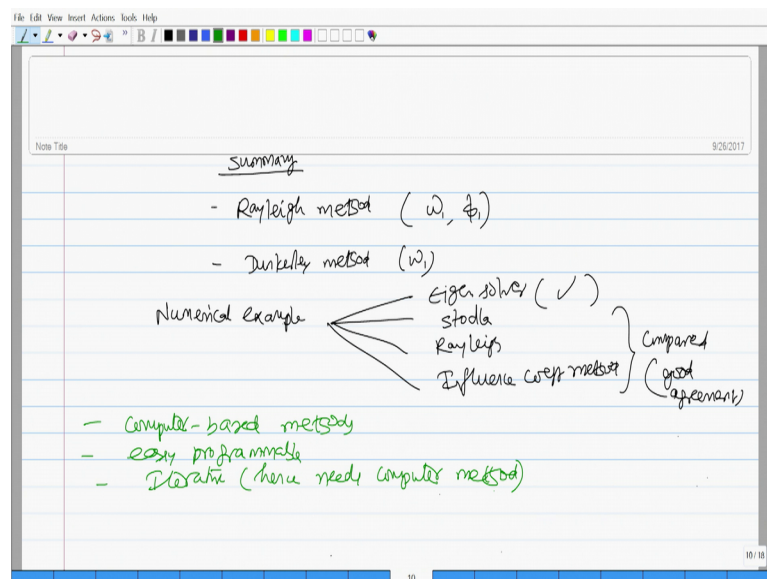 File Edit View Insert Actions Tools Help
B I
Note Title
9/26/2017
Summary
- Rayleigh method (ω₁, ϕ₁)
- Dunkerley method (ω₁)
Numerical example
Eigen solver (✓)
Stodla
Rayleigh
Influence coeff method
Compared
(good
agreement)
- Computer-based methods
- easy programmable
- Iterative (hence needs computer method)
10 / 18
10